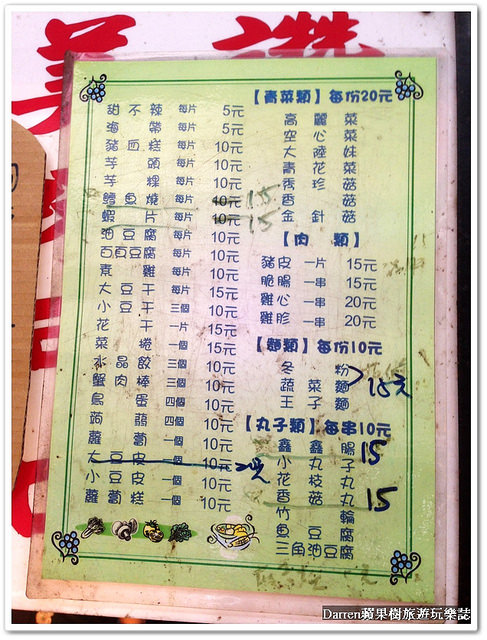 甜不辣 每片 5元
海帶 每片 5元
豬血糕 每片 10元
芋頭 每片 10元
芋粿 每片 10元
鱈魚燒 每片 10元 15
蝦片 每片 10元 15
油豆腐 每片 10元
百頁豆腐 每片 10元
素雞 每片 10元
大豆干 每片 15元
小豆干 三個 10元
花干 一片 15元
菜捲 一個 15元
水晶餃 三個 10元
蟹肉棒 三個 10元
鳥蛋 四個 10元
蒟蒻 四個 10元
蘿蔔 一個 10元
大豆皮 一個 10元
小豆皮 一個 10元
蘿蔔糕 一個 10元
【青菜類】每份20元
高麗菜
空心菜
大陸妹
青花菜
秀珍菇
香菇
金針菇
【肉類】
豬皮 一片 15元
脆腸 一串 15元
雞心 一串 20元
雞胗 一串 20元
【麵類】每份10元
冬粉
蔬菜麵
王子麵
15元
【丸子類】每串10元
鑫鑫腸 15
小丸子
花枝丸
香菇丸 15
竹輪
魚豆腐
三角油豆腐
Darren蘋果樹旅遊玩樂誌